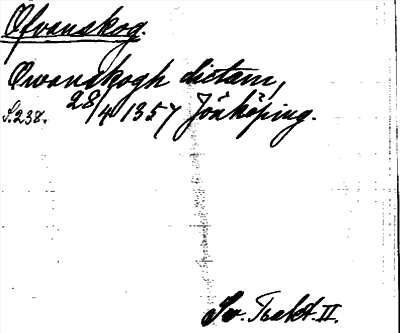 Öfvanskog.
Owanskogh dictam,
S. 238. 28/4 1357 Jönköping.
Sv. Trakt. II.